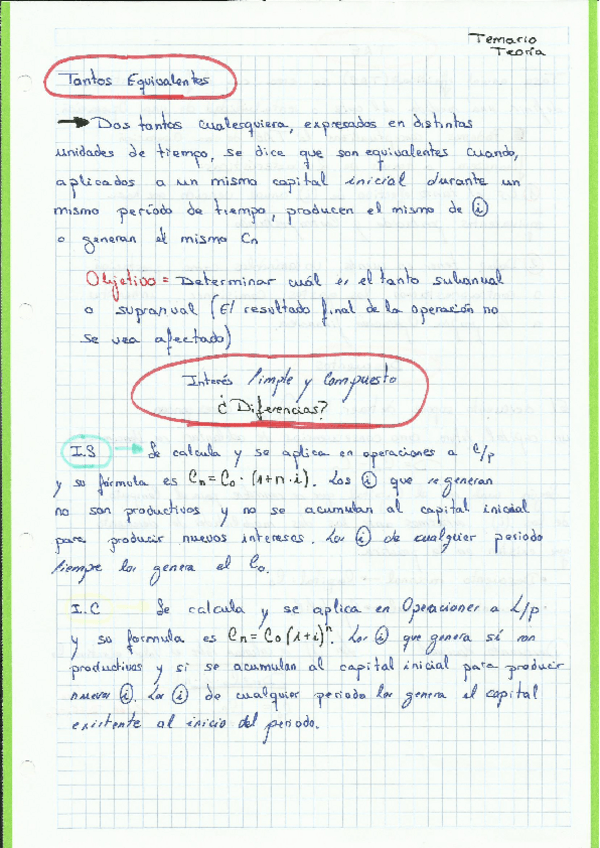 Temario
Teoría
Tantos Equivalentes
→ Dos tantos cualesquiera, expresados en distintas
unidades de tiempo, se dice que son equivalentes cuando,
aplicados a un mismo capital inicial durante un
mismo período de tiempo, producen el mismo de i
o generan el mismo Cn
Objetivo = Determinar cuál es el tanto subanual
o supranual (El resultado final de la operación no
se vea afectado)
Interés Simple y Compuesto
¿Diferencias?
I.S → Se calcula y se aplica en operaciones a c/p
y su fórmula es Cn = Co · (1+n·i). Los i que se generan
no son productivos y no se acumulan al capital inicial
para producir nuevos intereses. Los i de cualquier periodo
siempre los genera el Co.
I.C Se calcula y se aplica en Operaciones a L/p.
y su formula es Cn = Co (1+i)ⁿ. Los i que genera sí son
productivos y si se acumulan al capital inicial para producir
nuevos i. Los i de cualquier periodo los genera el capital
existente al inicio del periodo.